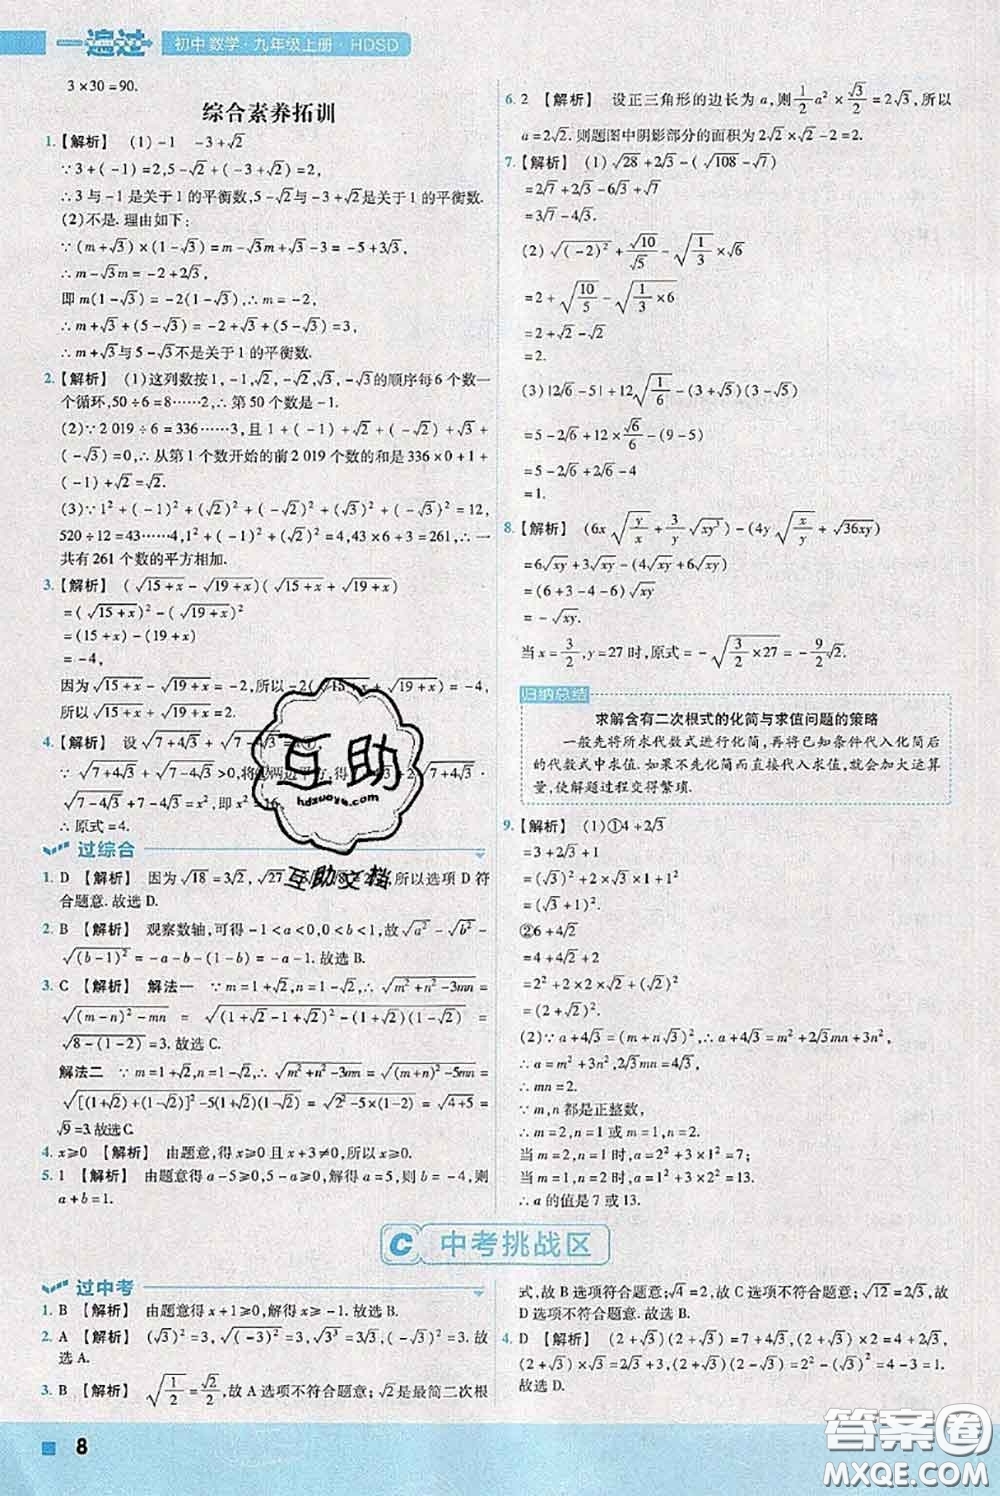 一遍过 初中 数学·九年级上册·HDSD
3×30=90.
综合素养拓训
1.【解析】 (1)-1 -3+√2
∵3+(-1)=2,5-√2+(-3+√2)=2,
∴3与-1是关于1的平衡数,5-√2与-3+√2是关于1的平衡数.
(2)不是.理由如下:
∵(m+√3)×(1-√3)=m-√3m+√3-3=-5+3√3,
∴m-√3m=-2+2√3,
即m(1-√3)=-2(1-√3),∴m=-2,
∴m+√3+(5-√3)=-2+√3+(5-√3)=3,
∴m+√3与5-√3不是关于1的平衡数.
2.【解析】 (1)这列数按1,-1,√2,-√2,√3,-√3的顺序每6个数一
个循环,50÷6=8……2,∴第50个数是-1.
(2)∵2 019÷6=336……3,且1+(-1)+√2+(-√2)+√3+
(-√3)=0,∴从第1个数开始的前2 019个数的和是336×0+1+
(-1)+√2=√2.
(3)∵1²+(-1)²+(√2)²+(-√2)²+(√3)²+(-√3)²=12,
520÷12=43……4,1²+(-1)²+(√2)²=4,43×6+3=261,∴一
共有261个数的平方相加.
3.【解析】 (√(15+x)-√(19+x))(√(15+x)+√(19+x))
=(√(15+x))²-(√(19+x))²
=(15+x)-(19+x)
=-4,
因为√(15+x)-√(19+x)=-2,所以-2(√(15+x)+√(19+x))=-4,
所以√(15+x)+√(19+x)=2.
4.【解析】 设√(7+4√3)+√(7-4√3)=
∵√(7+4√3)+√(7-4√3)>0,将 两边平方,得
√(7-4√3)+7-4√3=x²,即x²=16,
∴原式=4.
过综合
1. D 【解析】 因为√18=3√2,√27 所以选项D符
合题意.故选D.
2. B 【解析】 观察数轴,可得-1<a<0,0<b<1,所以√a²-√b²-
√((b-1)²)=-a-b-(1-b)=-a-1.故选B.
3. C 【解析】 解法一 ∵m=1+√2,n=1-√2,∴√(m²+n²-3mn)=
√((m-n)²-mn)=√((1+√2-1+√2)²-(1+√2)(1-√2))=
√(8-(1-2))=3.故选C.
解法二 ∵m=1+√2,n=1-√2,∴√(m²+n²-3mn)=√((m+n)²-5mn)=
√([(1+√2)+(1-√2)]²-5(1+√2)(1-√2))=√(2²-5×(1-2))=√(4+5)=
√9=3.故选C
4. x≥0 【解析】 由题意,得x≥0且x+3≠0,所以x≥0.
5. 1 【解析】 由题意得a-5≥0,5-a≥0,解得a=5,则b=-4,则
a+b=1.
6. 2 【解析】 设正三角形的边长为a,则1/2a²×√3/2=2√3,所以
a=2√2.则题图中阴影部分的面积为2√2×√2-2√3-2
7.【解析】 (1)√28+2√3-(√108-√7)
=2√7+2√3-6√3+√7
=3√7-4√3.
(2)√((-2)²)+√10/√5-√(1/3)×√6
=2+√(10/5)-√(1/3×6)
=2+√2-√2
=2.
(3)|2√6-5|+12√(1/6)-(3+√5)(3-√5)
=5-2√6+12×√6/6-(9-5)
=5-2√6+2√6-4
=1.
8.【解析】 (6x√(y/x)+3/y√(xy³))-(4y√(x/y)+√(36xy))
=6√(xy)+3√(xy)-(4√(xy)+6√(xy))
=(6+3-4-6)√(xy)
=-√(xy).
当x=3/2,y=27时,原式=-√(3/2×27)=-9/2√2.
归纳总结
求解含有二次根式的化简与求值问题的策略
一般先将所求代数式进行化简,再将已知条件代入化简后
的代数式中求值.如果不先化简而直接代入求值,就会加大运算
量,使解题过程变得繁琐.
9.【解析】 (1)①4+2√3
=3+2√3+1
=(√3)²+2×√3×1+1²
=(√3+1)².
②6+4√2
=4+4√2+2
=2²+2×2×√2+(√2)²
=(2+√2)².
(2)∵a+4√3=(m+n√3)²,∴a+4√3=m²+2√3mn+3n²,
∴a=m²+3n²,2√3mn=4√3,
∴mn=2.
∵m,n都是正整数,
∴m=2,n=1或m=1,n=2.
当m=2,n=1时,a=2²+3×1²=7;
当m=1,n=2时,a=1²+3×2²=13.
∴a的值是7或13.
C 中考挑战区
过中考
1. B 【解析】 由题意得x+1≥0,解得x≥-1.故选B.
2. A 【解析】 (√3)²=3,√((-3)²)=3,√3³=3√3,(-√3)²=3.故
选A.
3. B 【解析】 √(1/2)=√2/2,故A选项不符合题意;√2是最简二次根
式,故B选项符合题意;√4=2,故C选项不符合题意;√12=2√3,故
D选项不符合题意.故选B.
4. D 【解析】 (2+√3)(2+√3)=7+4√3,(2+√3)×
(2+√3)×√3=2√3+3,(2+√3)(2-√3)=2²-(√3)²=4-3=1.
故选D.
8
互助
hdzuoye.com
互助文档
答案圈
MXQE.COM